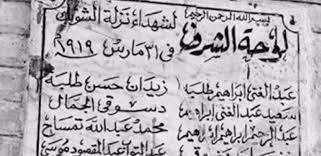 بسم الله الرحمن الرحيم
لوحة الشرف لشهداء نزلة الشوبك
في ٣١ مارس ١٩١٩
عبد الغني ابراهيم طلبة زيدان حسن طلبة
سعيد عبد الغني ابراهيم دسوقي الجمال
عبد الرحمن ابراهيم محمد عبد الله تمساح
عبد التواب عبد المقصود موسى